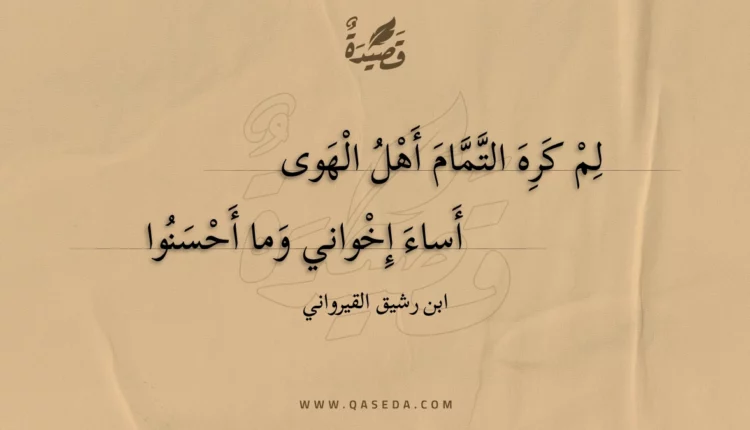 قَصِيْدَةٌ
لِمْ كَرِهَ التَّمَّامَ أَهْلُ الْهَوى
أَساءَ إِخْواني وَما أَحْسَنُوا
ابن رشيق القيرواني
WWW.QASEDA.COM